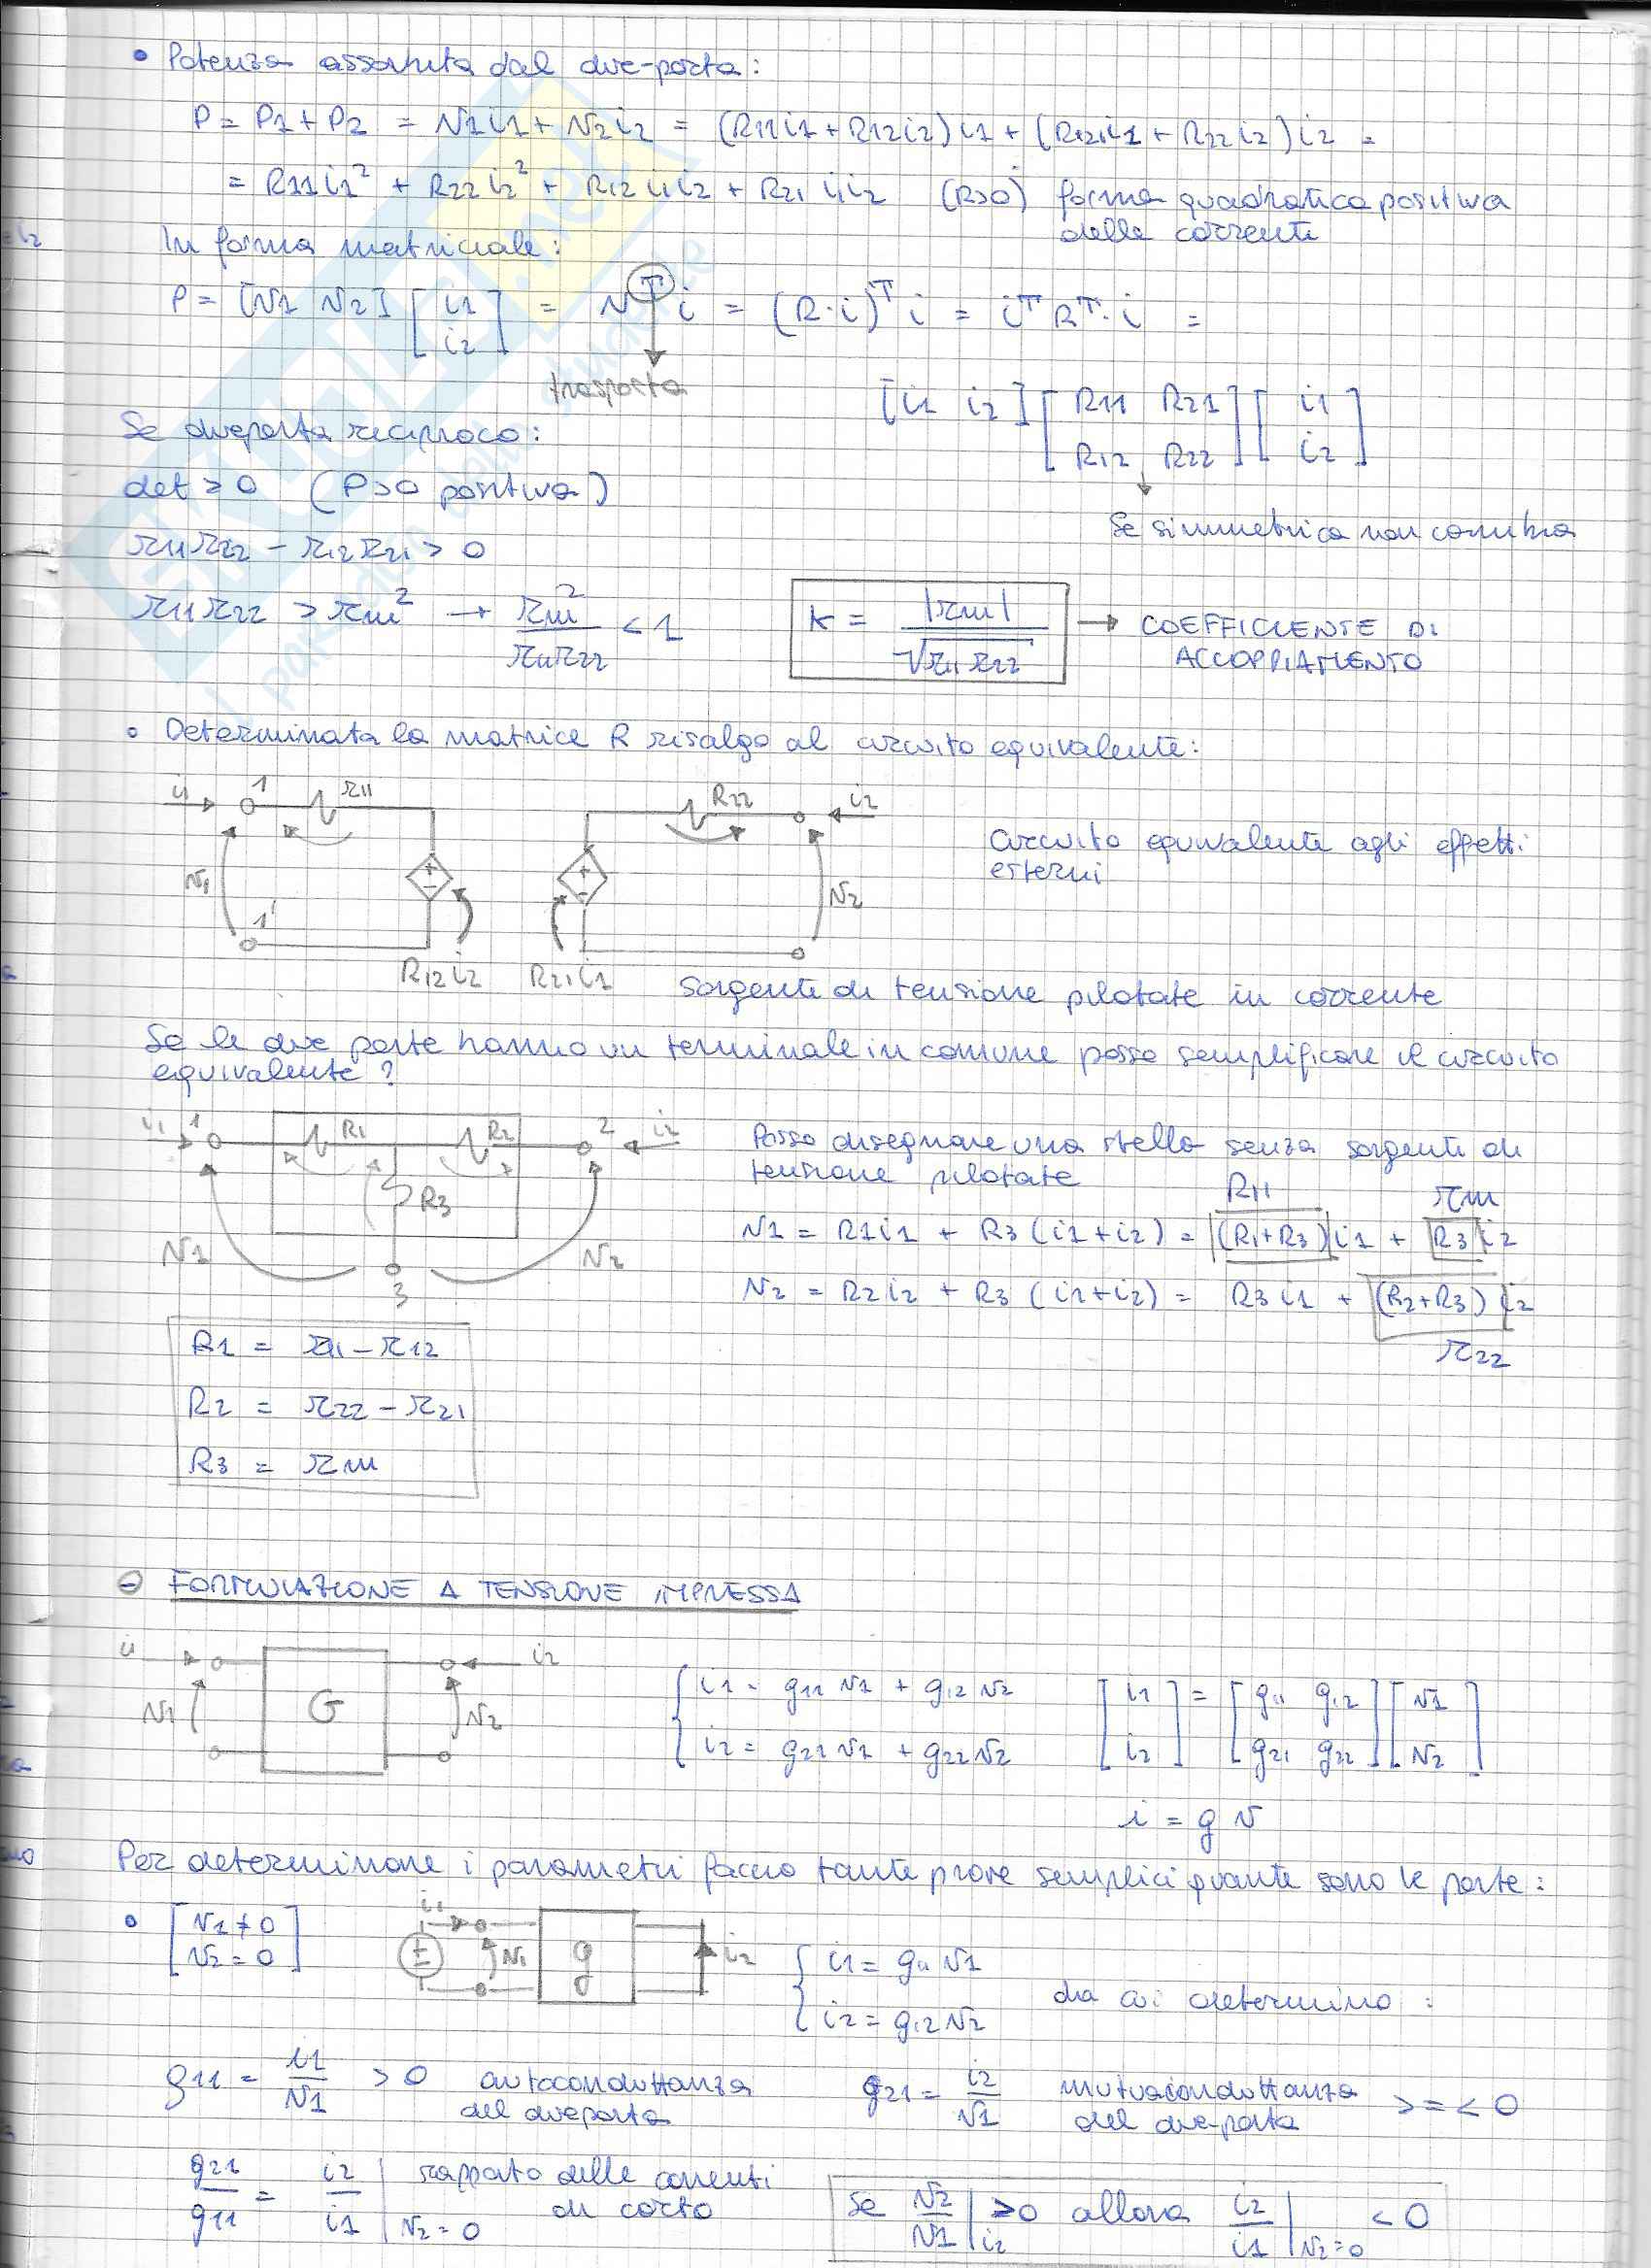 • Potenza assorbita dal due-porta:
P = P1 + P2 = v1i1 + v2i2 = (R11i1 + R12i2)i1 + (R21i1 + R22i2)i2 =
= R11i1² + R22i2² + R12i1i2 + R21i1i2 (R>0) forma quadratica positiva
delle correnti
In forma matriciale:
P = [v1 v2] [i1 i2] = v^T i = (R·i)^T i = i^T R^T· i =
trasposta
[i1 i2] [R11 R21 R12 R22] [i1 i2]
Se simmetrica non cambia
Se dueporta reciproco:
det > 0 (P>0 positiva)
r11r22 - r12r21 > 0
r11r22 > rm² → rm²/r11r22 < 1
k = |rm|/√r11r22 → COEFFICIENTE DI
ACCOPPIAMENTO
• Determinata la matrice R risalgo al circuito equivalente:
i1 1 r11 R22 i2
v1 + - + - v2
1'
R12i2 R21i1
Circuito equivalente agli effetti
esterni
Sorgenti di tensione pilotate in corrente
Se le due porte hanno un terminale in comune posso semplificare il circuito
equivalente?
i1 1 R1 R2 2 i2
R3
v1 v2
3
Posso disegnare una stella senza sorgenti di
tensione pilotate
R11 rm
v1 = R1i1 + R3(i1+i2) = (R1+R3)i1 + R3 i2
v2 = R2i2 + R3(i1+i2) = R3i1 + (R2+R3)i2
r22
R1 = r11 - r12
R2 = r22 - r21
R3 = rm
⊖ FORMULAZIONE A TENSIONE IMPRESSA
i1 i2
v1 G v2
{ i1 = g11 v1 + g12 v2
i2 = g21 v1 + g22 v2
[i1 i2] = [g11 g12 g21 g22] [v1 v2]
i = g v
Per determinare i parametri faccio tante prove semplici quante sono le porte:
• [v1 ≠ 0
v2 = 0]
i1 + - v1 g i2
{ i1 = g11 v1
i2 = g12 v2
da cui determino:
g11 = i1/v1 > 0 autoconduttanza
del dueporta
g21 = i2/v1 mutuaconduttanza
del due-porta > = < 0
g21/g11 = i2/i1 | v2 = 0 rapporto delle correnti
di corto
Se v2/v1 | i2 >0 allora i2/i1 | v2=0 < 0